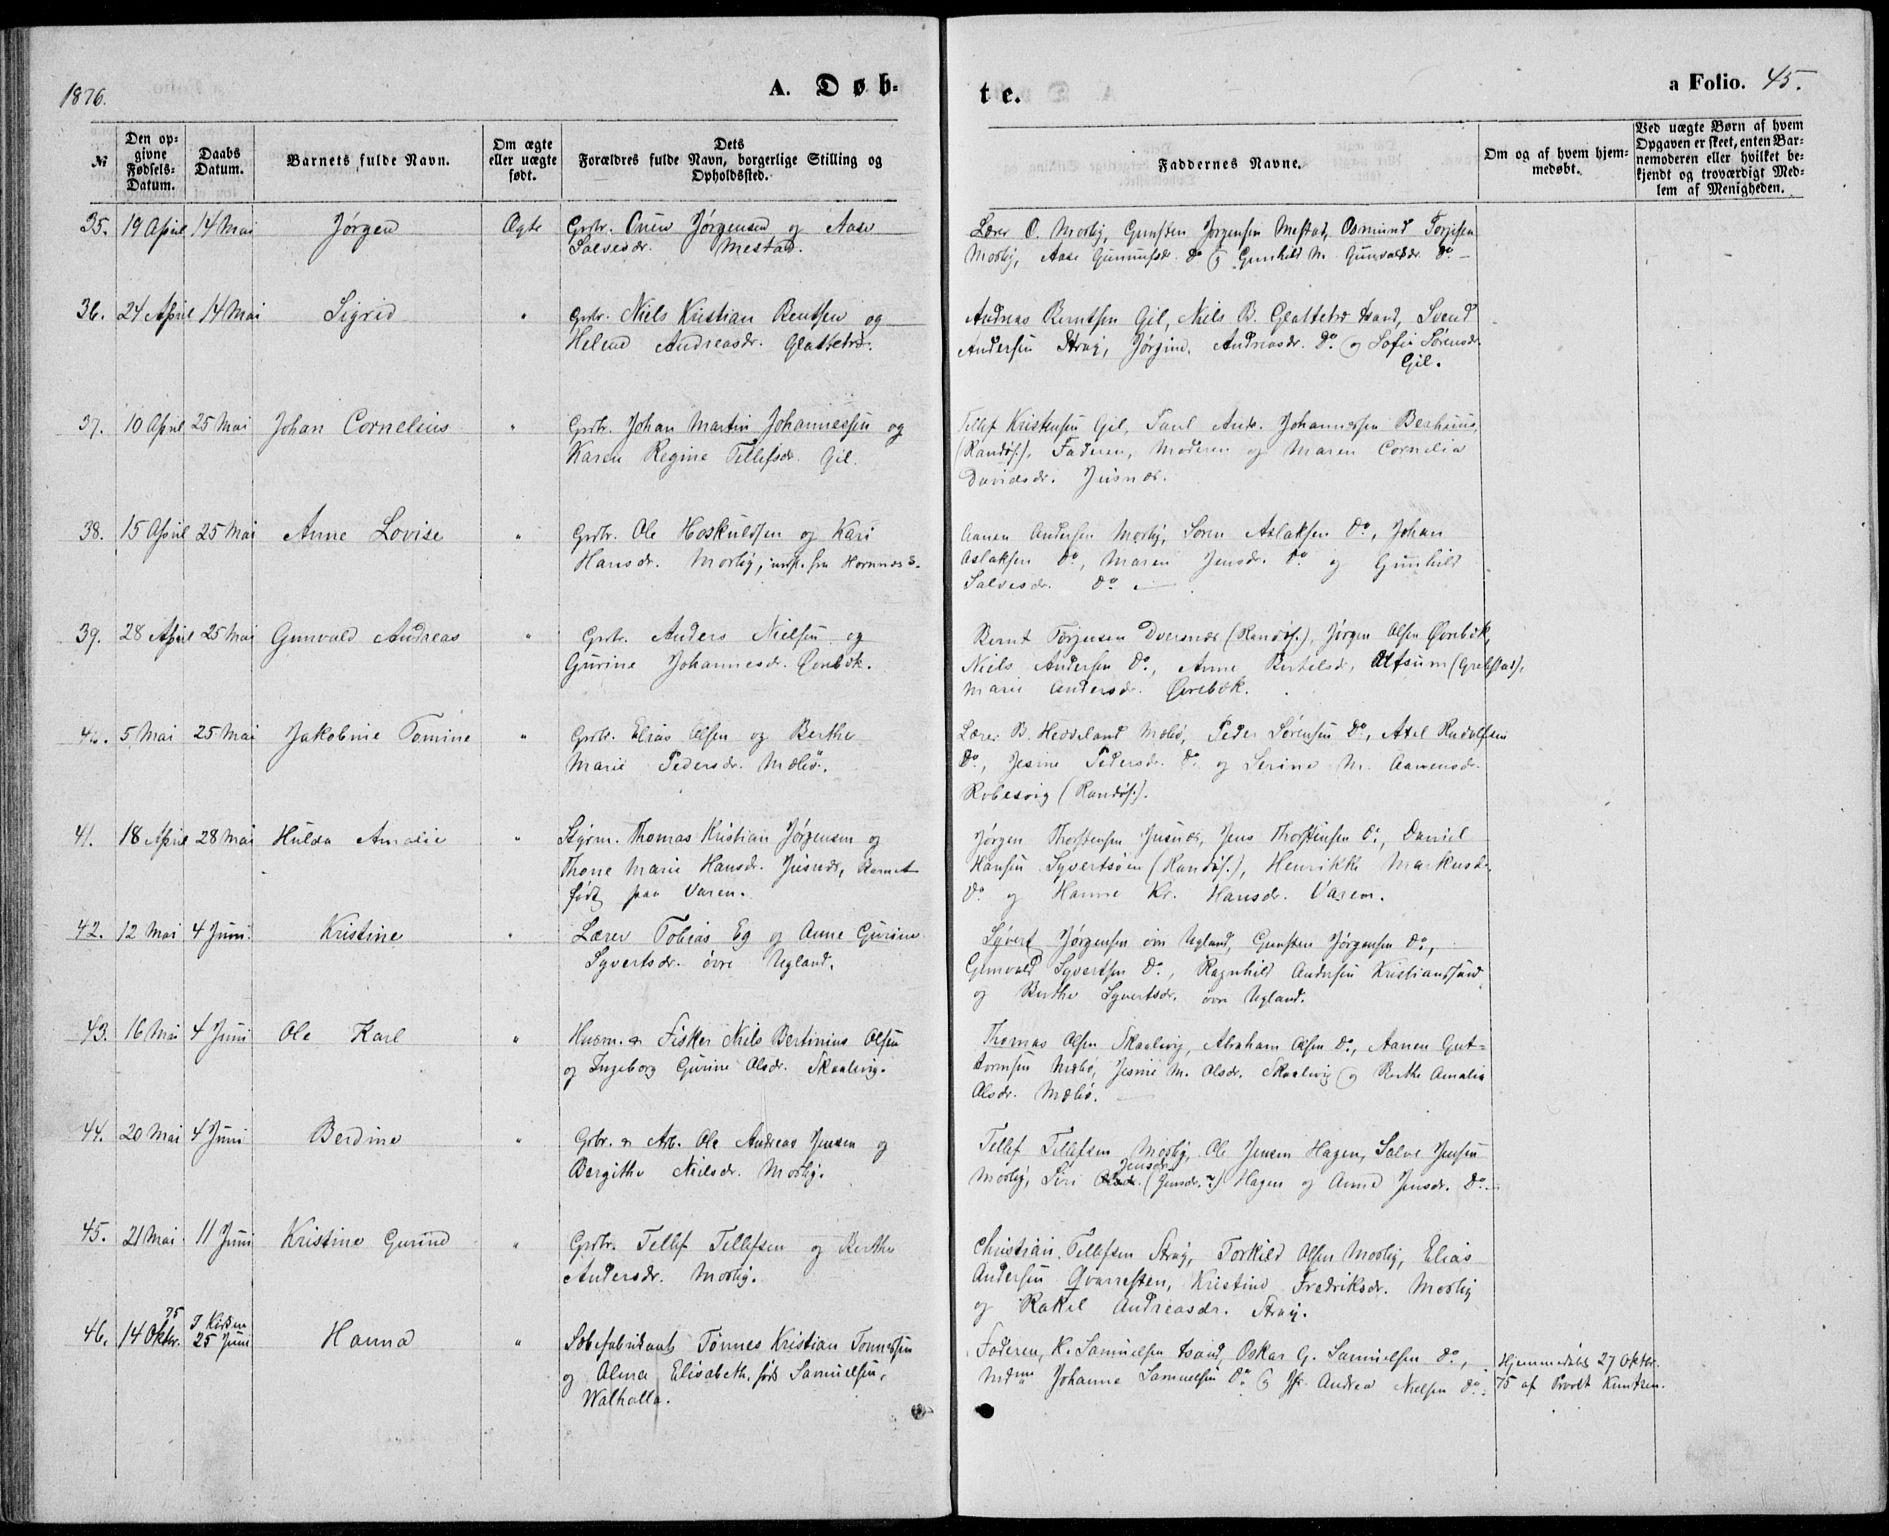 1876.
A. Døb-
te.
a Folio. 45.
№
Den op-
givne
Fødsels-
Datum.
Daabs
Datum.
Barnets fulde Navn.
Om ægte
eller uægte
født.
Dets
Forældres fulde Navn, borgerlige Stilling og
Opholdssted.
Faddernes Navne.
Om og af hvem hjem-
medøbt.
Ved uægte Børn af hvem
Opgaven er skeet, enten Bar-
nemoderen eller hvilket be-
kjendt og troværdigt Med-
lem af Menigheden.
35. 19 April 14 Mai Jørgen Ægte Grdbr. Jørgensen og Aase
Salvesdr. Mestad.
Lærer O. Moslig, Gunsten Jørgensen Mestad, Osmund Torjesen
Moslig, Aase Gunnufsdr. Do & Gunhild M. Gunvaldsdr. Do
36. 24 April 14 Mai Sigrid " Grdbr. Niels Kristian Bentsen og
Helene Andreasdr. Glattetre.
Andreas Berntsen Gil, Niels B. Glattetre, Svend
Andersen Stray, Jørgine Andreasdr. Do og Sofie Sørensdr.
Gil.
37. 10 April 25 Mai Johan Cornelius " Grdbr. Johan Martin Johannessen og
Karen Regine Tellefsdr. Gil.
Tellef Kristensen Gil, Andr. Johannessen
(Randøs.), Faderen, Moderen og Maren Cornelia
Davidsdr. Justnes.
38. 15 April 25 Mai Anne Lovise " Grdbr. Ole Hoskuldsen og Kari
Hansdr. Moslig, fra Hornnes
Aanen Andersen Moslig, Søren Aslaksen Do, Johan
Aslaksen Do, Maren Jensdr. Do og Gunhild
Salvesdr. Do
39. 28 April 25 Mai Gunvald Andreas " Grdbr. Anders Nielsen og
Gurine Johannesdr. Øvrebøk.
Bernt Torjensen Dversnes (Randøs.), Jørgen Olsen Øvrebøk,
Niels Andersen Do, Anne Bertelsdr. (Grebstad),
Marie Andersdr. Øvrebøk.
40. 5 Mai 25 Mai Jakobine Tomine " Grdbr. Elias Olsen og Berthe
Marie Pedersdr. Mæbø.
Lærer B. Heddeland Mæbø, Peder Sørensen Do, Axel Rudolfsen
Do, Jesine Pedersdr. Do og Serine M. Aanensdr.
(Randøs.).
41. 18 April 28 Mai Hulda Amalie " Styrm. Thomas Kristian Jørgensen og
Thone Marie Hansdr. Justnes, Barnet
født paa Varen.
Jørgen Thorstensen Justnes, Jens Thorstensen Do, Daniel
Hansen (Randøs.), Henrikke Markusdr.
Do og Hanne Kr. Hansdr. Varen.
42. 12 Mai 4 Juni Kristine " Lærer Tobias Eg og Anne Gurine
Syvertsdr. øvre Ugland.
Syvert Jørgensen øvre Ugland, Gunsten Jørgensen Do,
Gunvald Syvertsen Do, Ragnhild Andersen Kristiansand
og Berthe Syvertsdr. øvre Ugland.
43. 16 Mai 4 Juni Ole Karl " Husm. & Fisker Niels Bertinius Olsen
og Ingeborg Gurine Olsdr. Skaalevig.
Thomas Olsen Skaalevig, Abraham Olsen Do, Aanen Gut-
tormsen Mæbø, Jesine M. Olsdr. Skaalevig og Berthe Amalia
Olsdr. Mæbø.
44. 20 Mai 4 Juni Berdine " Grbr. & Arb. Ole Andreas Jensen og
Bergithe Nielsdr. Moslig.
Tellef Tellefsen Moslig, Ole Jensen Hagen, Salve Jensen
Jensdr.
Moslig, Siri Olsdr. Hagen og Anne Jensdr. Do
45. 21 Mai 11 Juni Kristine Gurine " Grdbr. Tellef Tellefsen og Berthe
Andersdr. Moslig.
Christian Tellefsen Stray, Torkild Olsen Moslig, Elias
Andersen Qvarresten, Kristine Fredriksdr. Moslig
og Rakel Andreasdr. Stray.
46. 14 Oktbr. 75 I Kirken 25 Juni Hanna " Sæbefabrikant Tønnes Kristian Tønnessen
og Alma Elisabeth, født Samuelsen,
Walhalla.
Faderen, K. Samuelsen, Oskar G. Samuelsen Do,
Johanne Samuelsen Do & Andrea Nielsen Do
Hjemmedøbt 27 Oktbr.
75 af Provst Knudsen.